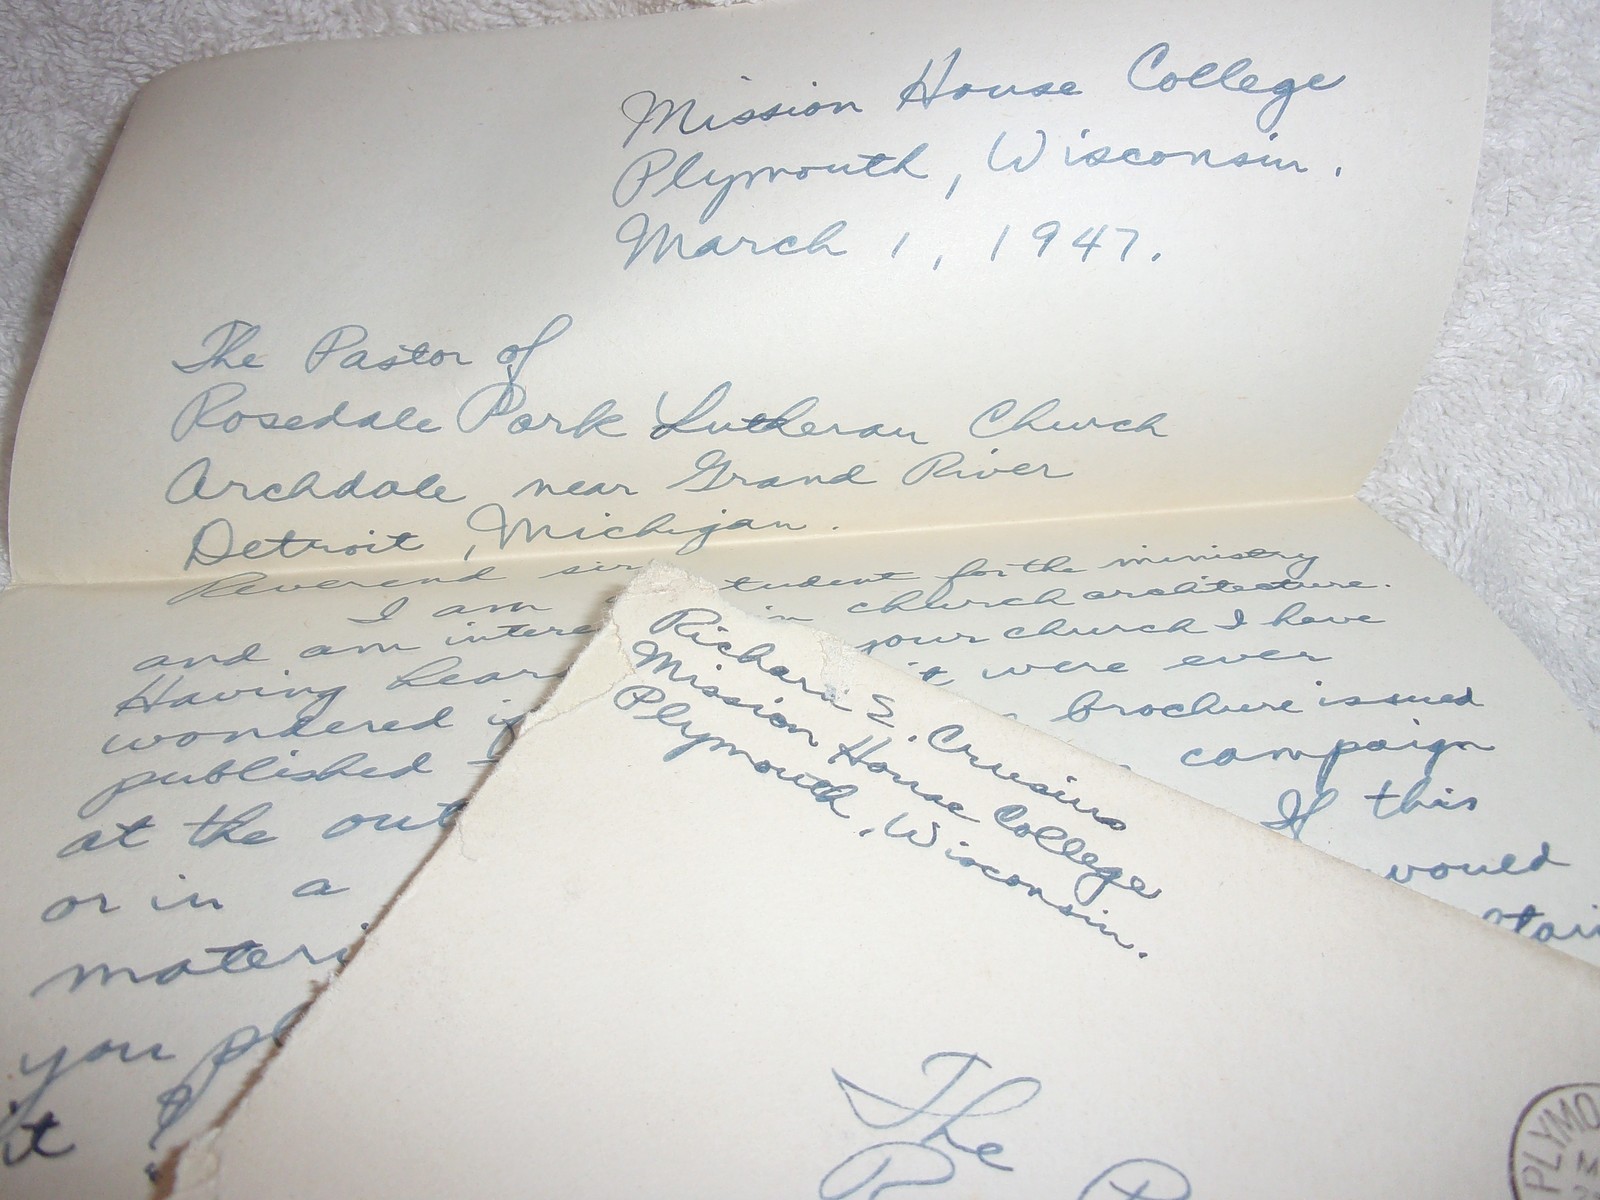 Mission House College
Plymouth, Wisconsin.
March 1, 1947.
The Pastor of
Rosedale Park Lutheran Church
Archdale, near Grand River
Detroit, Michigan.
Reverend sir
I am student for the ministry
and am in church architecture.
Having your church I have
wondered it were ever
published brochure issued
at the campaign
or in a If this
would
you
it
Richard E. Crusius
Mission House College
Plymouth, Wisconsin.
The
PLYMO